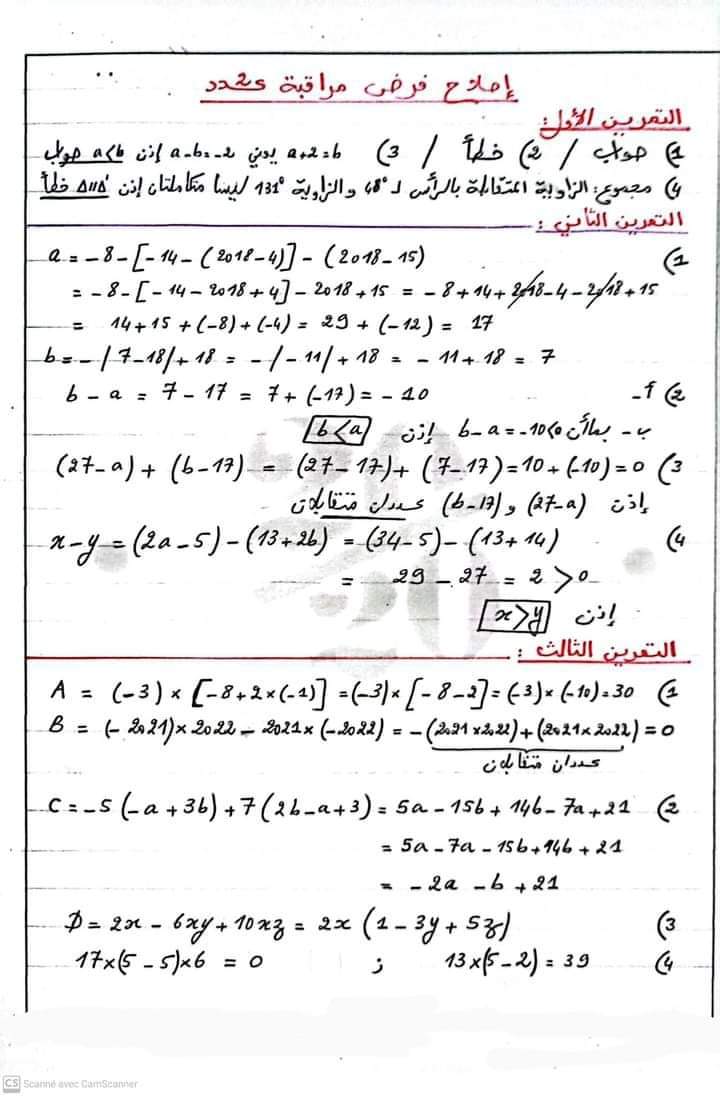 إصلاح فرض مراقبة عـ2ـدد
التمرين الأول:
1) صواب / 2) خطأ / 3) a+2=b يعني a-b=-2 إذن a<b صواب
4) مجموع الزاوية المتقابلة بالرأس لـ 48° والزاوية 131° ليسا متكاملتان إذن Δ//Δ' خطأ
التمرين الثاني:
1) a = -8-[-14-(2018-4)]-(2018-15)
= -8-[-14-2018+4]-2018+15 = -8+14+2018-4-2018+15
= 14+15+(-8)+(-4) = 29+(-12) = 17
b = -/7-18/+18 = -/-11/+18 = -11+18 = 7
2) أ- b-a = 7-17 = 7+(-17) = -10
ب- بما أن b-a=-10<0 إذن b<a
3) (27-a)+(b-17) = (27-17)+(7-17)=10+(-10)=0
إذن (27-a) و (b-17) عددان متقابلان
4) x-y=(2a-5)-(13+2b) =(34-5)-(13+14)
= 29-27 = 2 >0
إذن x>y
التمرين الثالث:
1) A = (-3)×[-8+2×(-1)] =(-3)×[-8-2]=(-3)×(-10)=30
B = (-2021)×2022-2021×(-2022) = -(2021×2022)+(2021×2022)=0
عددان متقابلان
2) C=-5(-a+3b)+7(2b-a+3)=5a-15b+14b-7a+21
= 5a-7a-15b+14b+21
= -2a-b+21
3) D=2x-6xy+10xz=2x(1-3y+5z)
4) 13×(5-2)=39 ; 17×(5-5)×6 = 0
CS Scanné avec CamScanner